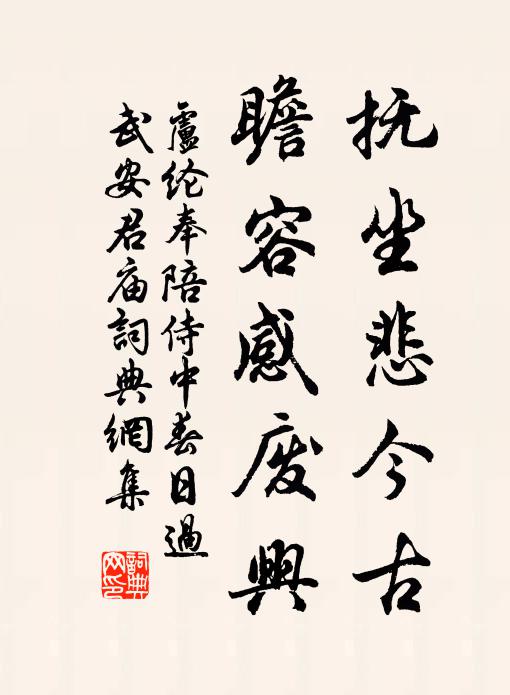 抚坐悲今古
瞻容感废興
盧纶奉陪侍中春日過
武安君庙詞典網集
詞典
网印